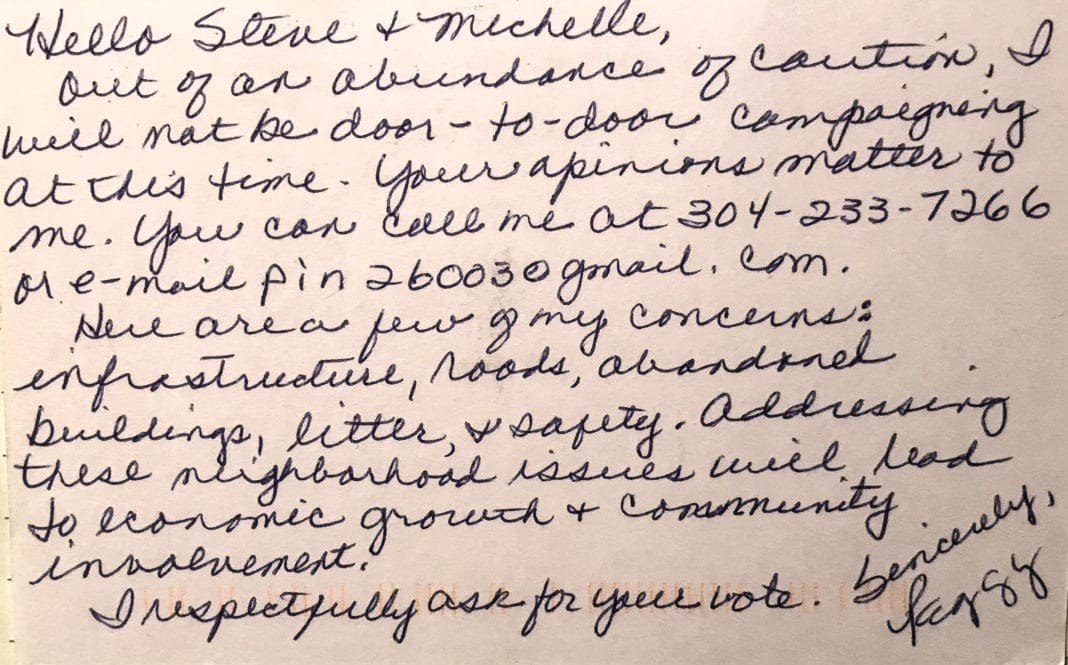 Hello Steve & Michelle,
Out of an abundance of caution, I
will not be door-to-door campaigning
at this time. Your opinions matter to
me. You can call me at 304-233-7266
or e-mail pin26003@gmail.com.
Here are a few of my concerns:
infrastructure, roads, abandoned
buildings, litter, & safety. Addressing
these neighborhood issues will lead
to economic growth & community
involvement.
I respectfully ask for your vote.
Sincerely,
Peggy